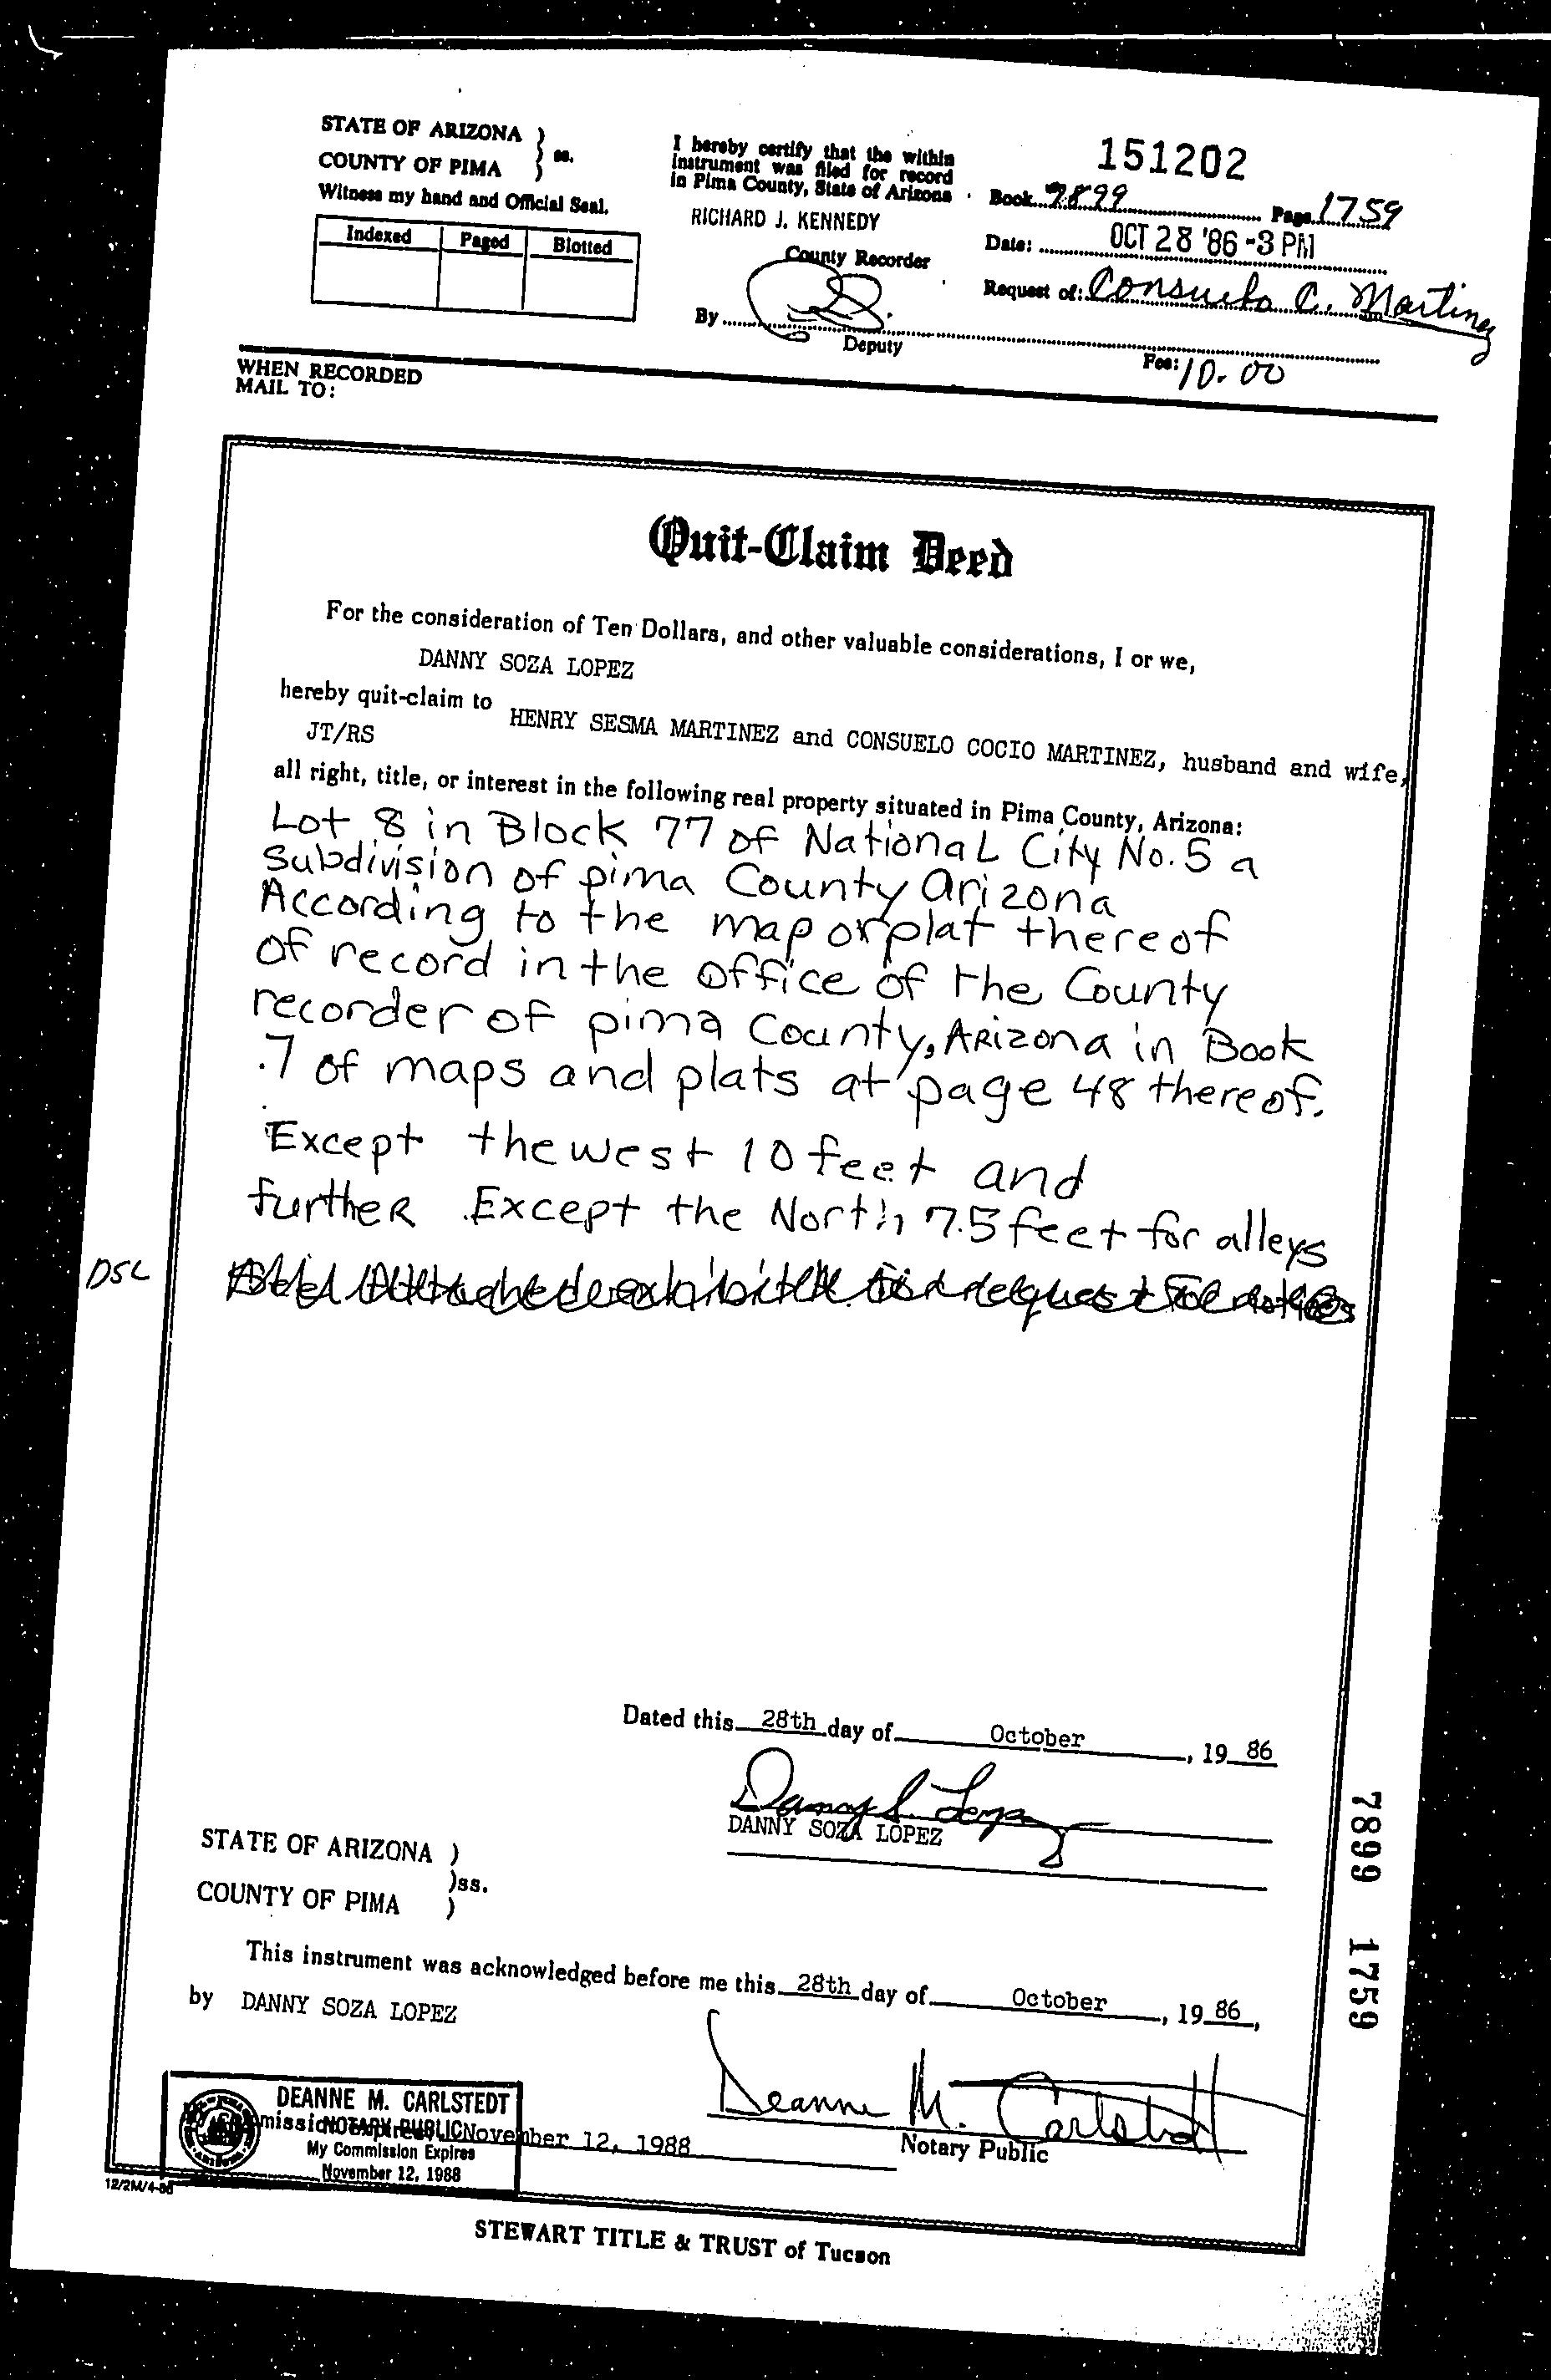 STATE OF ARIZONA } ss.
COUNTY OF PIMA
Witness my hand and Official Seal.
Indexed Paged Blotted
I hereby certify that the within
instrument was filed for record
in Pima County, State of Arizona
RICHARD J. KENNEDY
County Recorder
By
Deputy
151202
Book 7899 Page 1759
Date: OCT 28 '86 -3 PM
Request of: Consuelo C. Martinez
Fee: 10.00
WHEN RECORDED
MAIL TO:
Quit-Claim Deed
For the consideration of Ten Dollars, and other valuable considerations, I or we,
DANNY SOZA LOPEZ
hereby quit-claim to HENRY SESMA MARTINEZ and CONSUELO COCIO MARTINEZ, husband and wife,
JT/RS
all right, title, or interest in the following real property situated in Pima County, Arizona:
Lot 8 in Block 77 of National City No. 5 a
subdivision of pima County arizona
According to the map or plat thereof
of record in the office of the County
recorder of pima County, ARizona in Book
7 of maps and plats at page 48 thereof.
Except the west 10 feet and
furtheR Except the North 7.5 feet for alleys
DSL
Dated this 28th day of October, 19 86
Danny S. Lopez
DANNY SOZA LOPEZ
STATE OF ARIZONA )
)ss.
COUNTY OF PIMA )
This instrument was acknowledged before me this 28th day of October, 19 86,
by DANNY SOZA LOPEZ
Deanne M. Carlstedt
Notary Public
DEANNE M. CARLSTEDT
NOTARY PUBLIC November 12, 1988
My Commission Expires
November 12, 1988
12/2M/4-86
STEWART TITLE & TRUST of Tucson
7899 1759